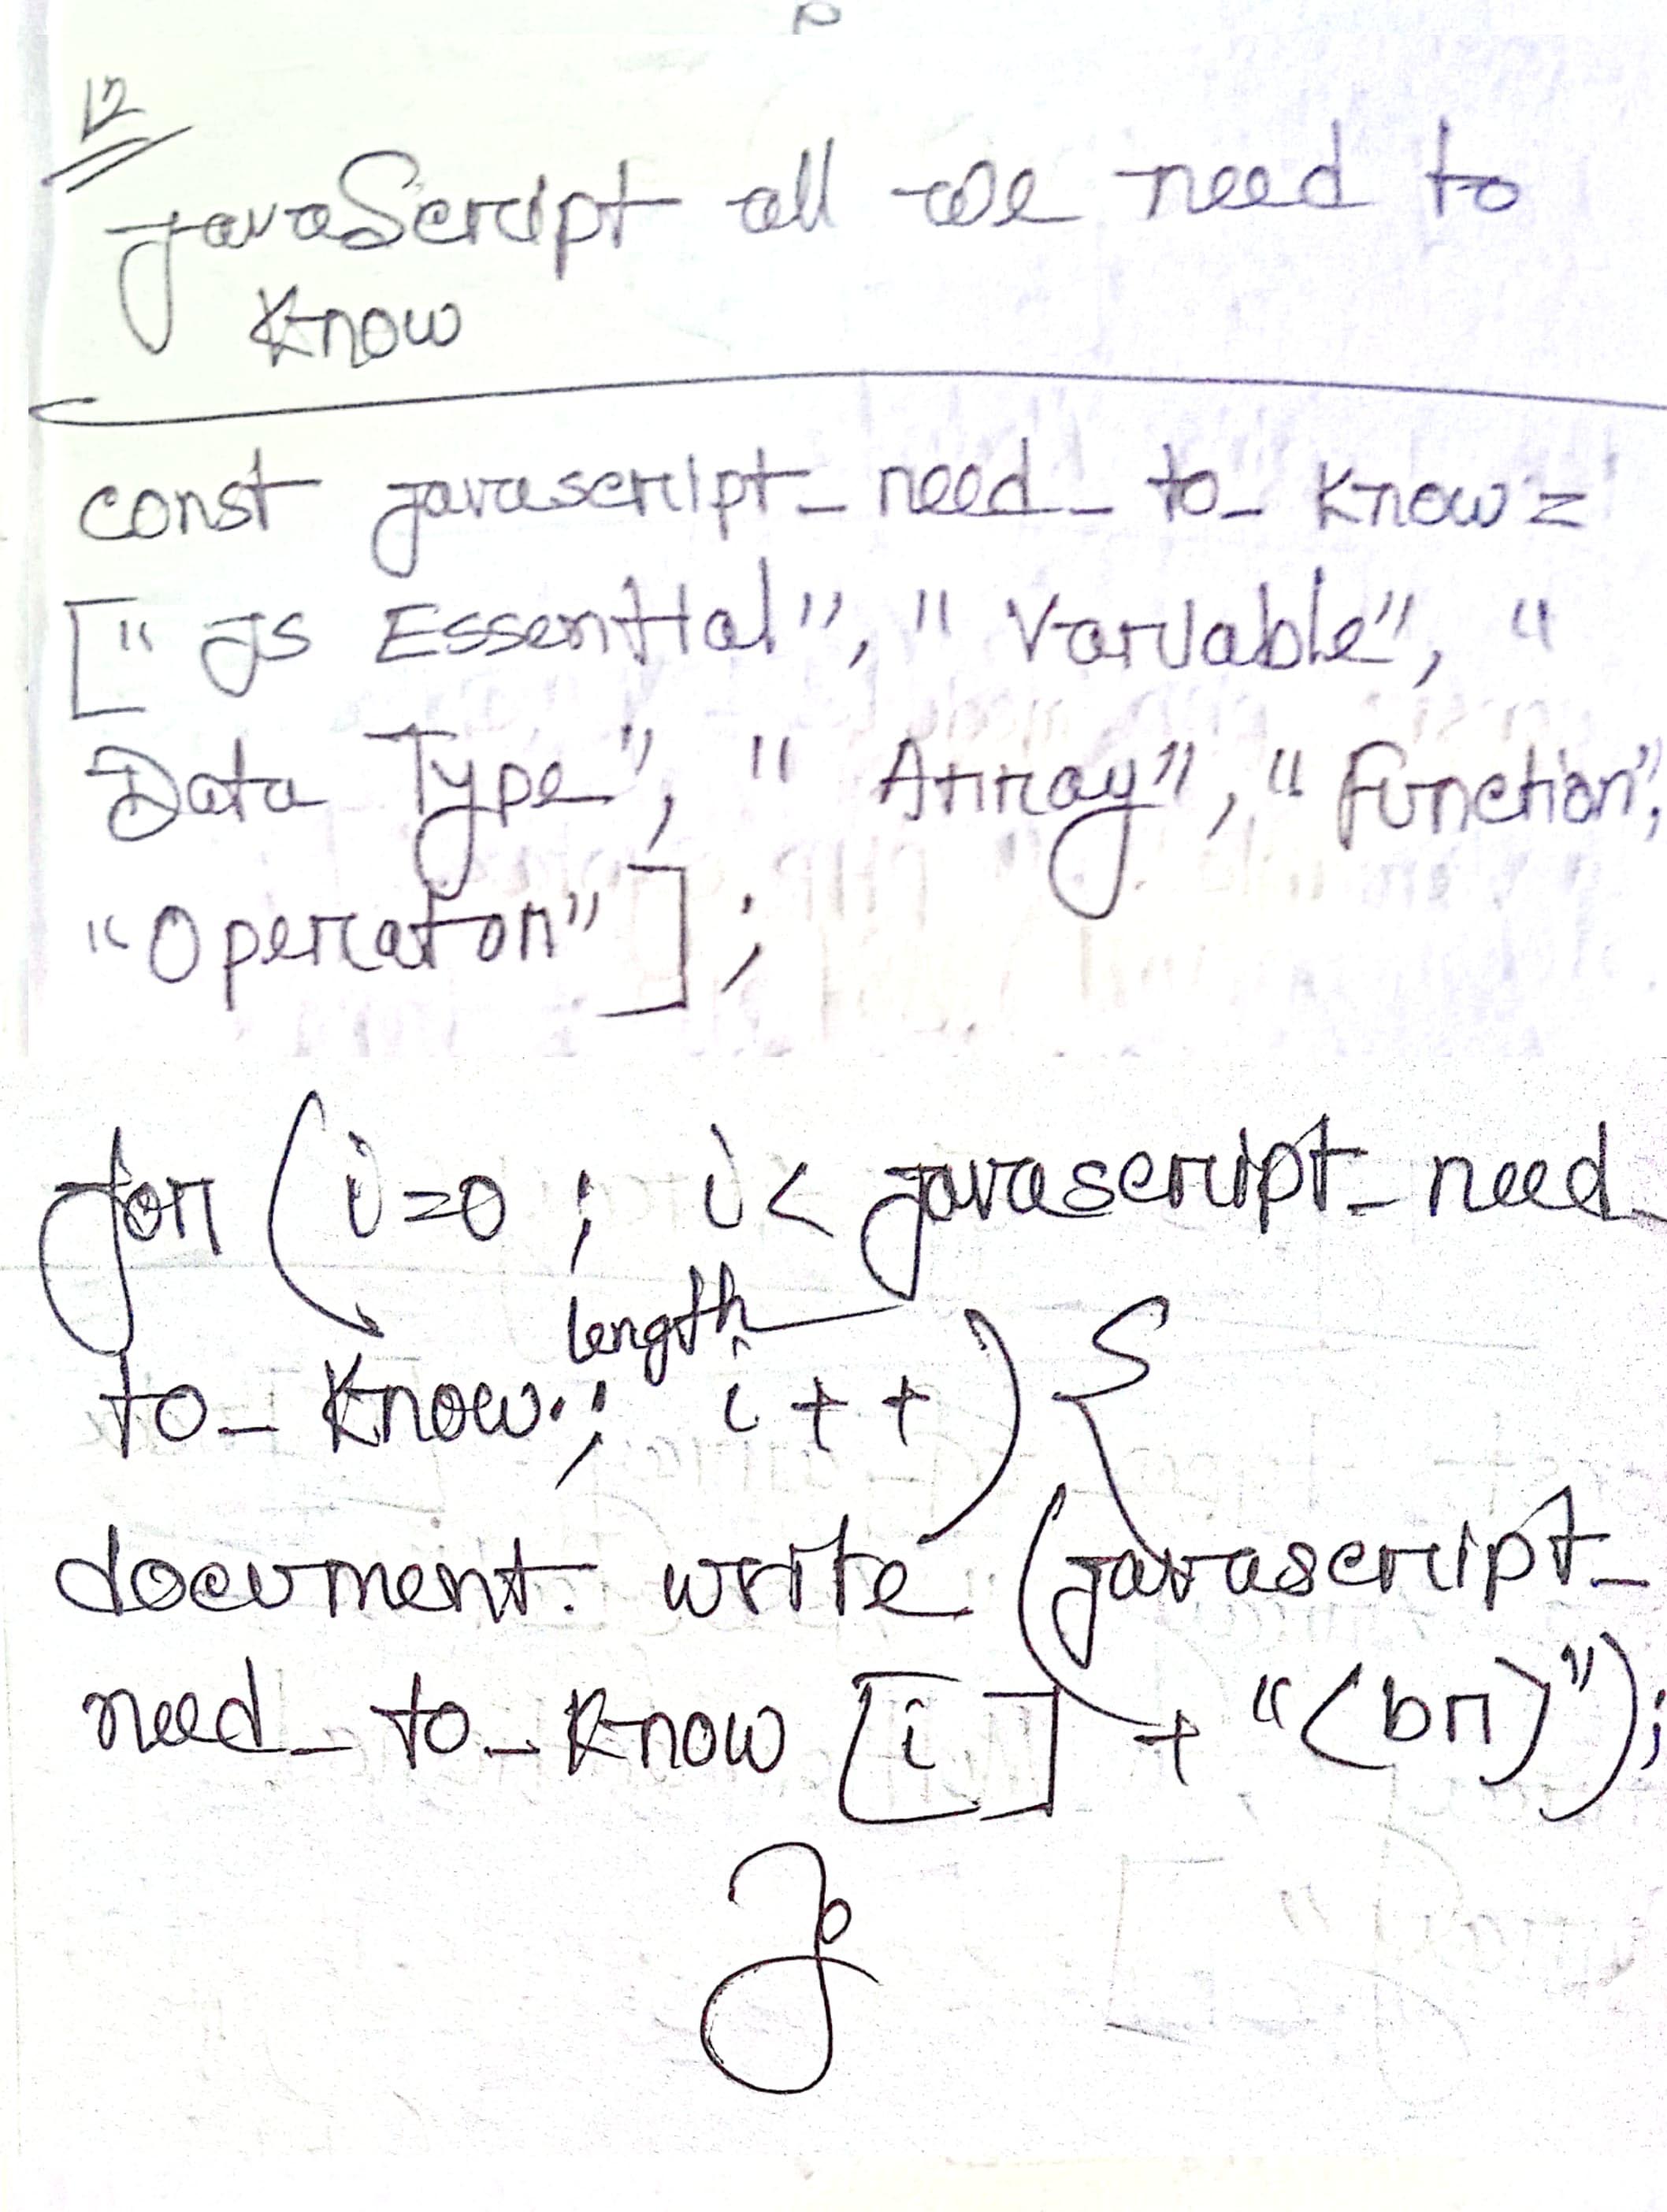 12
JavaScript all we need to
Know
const javascript_need_to_know=
["JS Essential", "Variable", "
Data Type", "Array", "Function",
"Operator"];
for (i=0; i< javascript_need_
to_know.length; i++) {
document.write (javascript_
need_to_know [i] + "<br>");
}